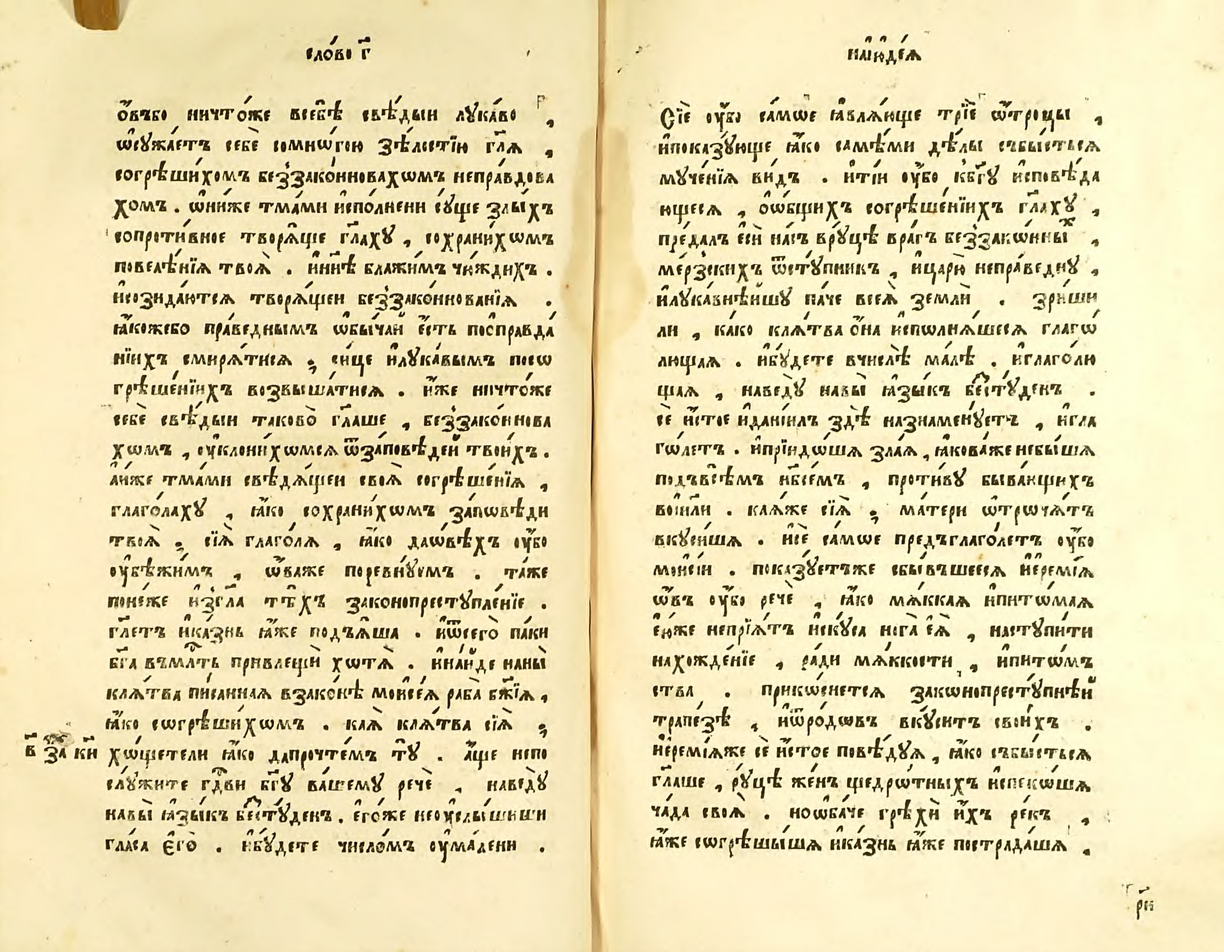 сло́во г҃
ѡ҆́въбо ничто́же всебѣ̀ свѣ́дыи лꙋка́во ,
ѡ҆сꙋжа́етъ себѐ сомно́гою ѕѣ́лостїю гл҃ѧ ,
согрѣши́хомъ беззако́нновахѡмъ неправдова
хомъ . ѡ҆ниже тма́ми и҆спо́лнени сꙋ́ще злы́хъ
сопроти́вное творѧ́ще гл҃ахꙋ , сохрани́хѡмъ
повелѣ́нїѧ твоѧ̀ . и҆нн҃ѣ блажи́мъ чю́ждихъ .
и҆созида́ютсѧ творѧ́щеи беззако́ннованїѧ .
ꙗ҆́коже́бо пра́веднымъ ѡ҆бы́чаи є҆́сть поспра́вда
нїихъ смирѧ́тисѧ ; си́це и҆лꙋка́вымъ посо
грѣше́нїихъ возвыша́тисѧ . и҆́же ничто́же
себѐ свѣ́дыи таково̀ гл҃аше , беззако́ннова
хѡмъ , ᲂу҆клони́хѡмсѧ ѿза́повѣдей твои́хъ .
а҆́иже тма́ми свѣ́дѧщеи своѧ̀ согрѣше́нїѧ ,
глаго́лахꙋ , ꙗ҆́ко сохрани́хѡмъ за́пѡвѣди
твоѧ̀ ; сїѧ̀ глаго́лѧ , ꙗ҆́ко даѡ҆вѣ́хъ ᲂу҆́бо
ᲂу҆бѣжи́мъ , ѡ҆́важе поревнꙋ́имъ . та́же
поне́же и҆згл҃а тѣ́хъ законопрестꙋпле́нїе .
гл҃етъ и҆ка́знь ꙗ҆́же подъѧ́ша . и҆ѿсего̀ па́ки
бг҃а въмл҃ть привлещѝ хотѧ̀ . и҆на́иде наны̀
клѧ́тва пи́саннаѧ взако́нѣ моисе́ѧ раба̀ бж҃їѧ ,
ꙗ҆́ко сѡгрѣши́хѡмъ . ка́ѧ клѧ́тва сїѧ̀ ;
в҃ за к҃и хѡ́щетели ꙗ҆́ко дапрочте́мъ тꙋ̀ . а҆́ще непо
слꙋ́жите гд҃ви бг҃ꙋ ва́шемꙋ речѐ , наведꙋ̀
навы̀ ꙗ҆зы́къ бестꙋ́денъ . є҆го́же неᲂуслы́шиши
гла́са є҆го̀ . и҆бꙋ́дете число́мъ ᲂу҆ма́лени .
наїю҆де́ѧ
Сїѐ ᲂу҆́бо са́мѡе ꙗ҆влѧ́юще трїѐ ѡ҆́троцы ,
и҆пока́зꙋюще ꙗ҆́ко самѣ́ми дѣ́лы събы́стьсѧ
мꙋче́нїѧ ви́дъ . и҆ті́и ᲂу҆́бо кбг҃ꙋ и҆сповѣ́да
ющесѧ , ѡ҆о́бщихъ согрѣше́нїихъ гл҃ахꙋ ,
преда́лъ є҆сѝ на́съ врꙋ́цѣ вра́гъ беззако́нныⷯ ,
ме́рзскихъ ѿстꙋ́пникъ , и҆царю̀ непра́веднꙋ ,
и҆лꙋка́внѣишꙋ па́че всеѧ̀ землѝ . зри́ши
ли , ка́ко клѧ́тва ѻ҆́на и҆сполнѧ́шесѧ глагѡ́
лющаѧ . и҆бꙋ́дете вчислѣ̀ ма́лѣ . и҆глаго́лю
щаѧ , наведꙋ̀ навы̀ ꙗ҆зы́къ бестꙋ́денъ .
се́ и҆стое и҆данїи́лъ здѣ̀ назна́менꙋетъ , и҆гла
го́летъ . и҆прїидѡ́шѧ зла́ѧ , ꙗ҆кова́же небы́шѧ
подъвсѣ́мъ нб҃семъ , проти́вꙋ быва́ющихъ
воі҆и҃ли . ка́ѧже сїѧ̀ ; ма́тери ѡ҆трѡчѧ́тъ
вкꙋси́шѧ . и҆сѐ са́мѡе предъглаго́летъ ᲂу҆́бо
моисе́и . показꙋ́етъже сбы́вшеесѧ і҆еремі́ѧ
ѡ҆́въ ᲂу҆́бо речѐ , ꙗ҆́ко мѧ́ккаѧ и҆пито́маѧ
є҆ѧ́же непрїѧ́тъ и҆скꙋ́са нога̀ є҆ѧ̀ , настꙋпи́ти
нахожде́нїе , ра́ди мѧ́ккости , и҆пито́мъ
ства . прико́снетсѧ закѡнопрестꙋ́пнѣй
трапе́зѣ , и҆пло́родѡвъ вкꙋ́ситъ свои́хъ .
і҆еремі́ѧже се́ и҆стое повѣ́дꙋѧ , ꙗ҆́ко събы́стьсѧ
гл҃аше , рꙋ́цѣ же́нъ щедро́тныхъ и҆спеко́шѧ
ча́да своѧ̀ . ноѡ҆ба́че грѣхѝ и҆́хъ ре́къ ,
ꙗ҆́же сѡгрѣши́шѧ и҆ка́знь ꙗ҆́же пострада́шѧ ,
ри҃